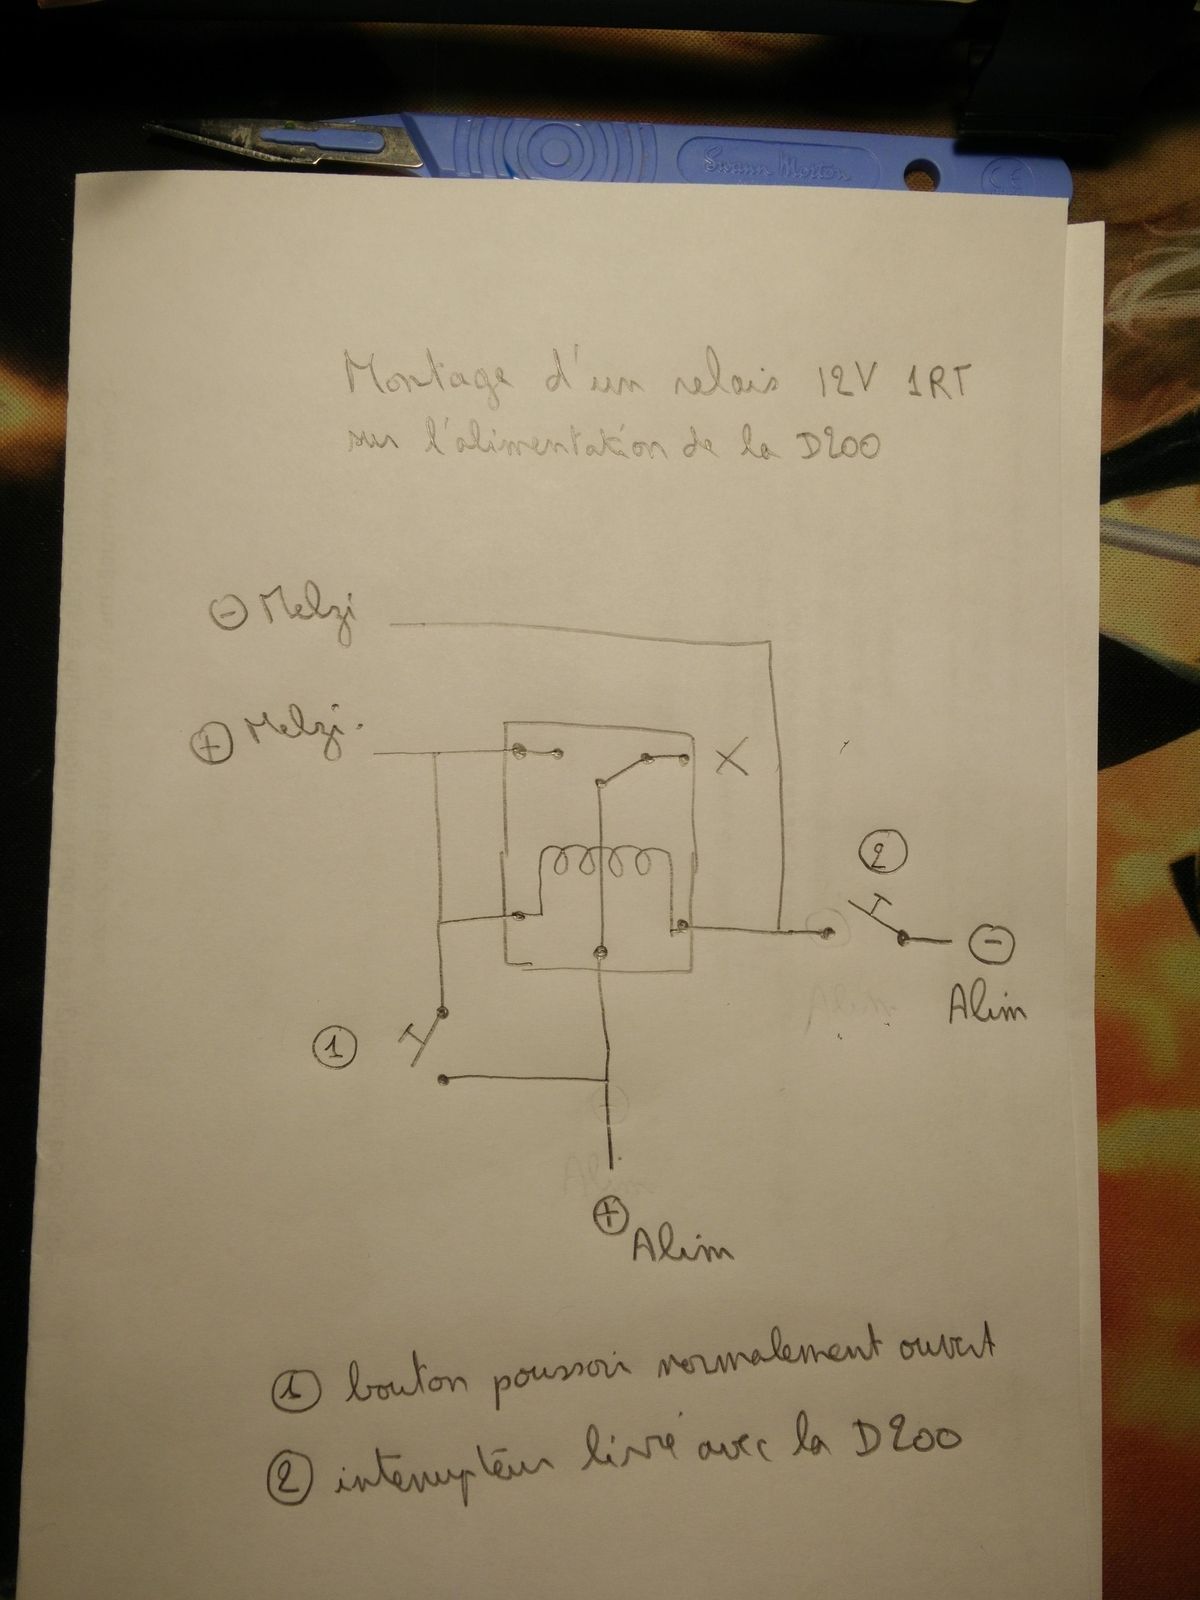 Swann Morton
CE
Montage d'un relais 12V 1RT
sur l'alimentation de la D200
⊖ Melzi
⊕ Melzi.
X
②
⊖
Alim
①
⊕
Alim
① bouton poussoir normalement ouvert
② interrupteur livré avec la D200